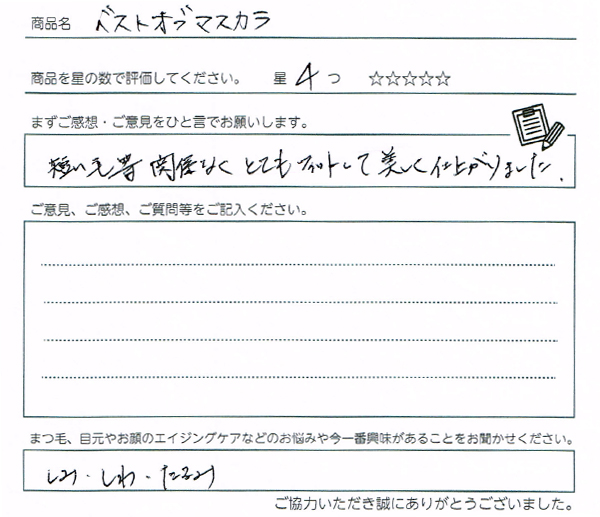 商品名 ベストオブマスカラ
商品を星の数で評価してください。 星 4 つ ☆☆☆☆☆
まずご感想・ご意見をひと言でお願いします。
短い毛等関係なくとてもフィットして美しく仕上がりました。
ご意見、ご感想、ご質問等をご記入ください。
まつ毛、目元やお顔のエイジングケアなどのお悩みや今一番興味があることをお聞かせください。
しみ・しわ・たるみ
ご協力いただき誠にありがとうございました。